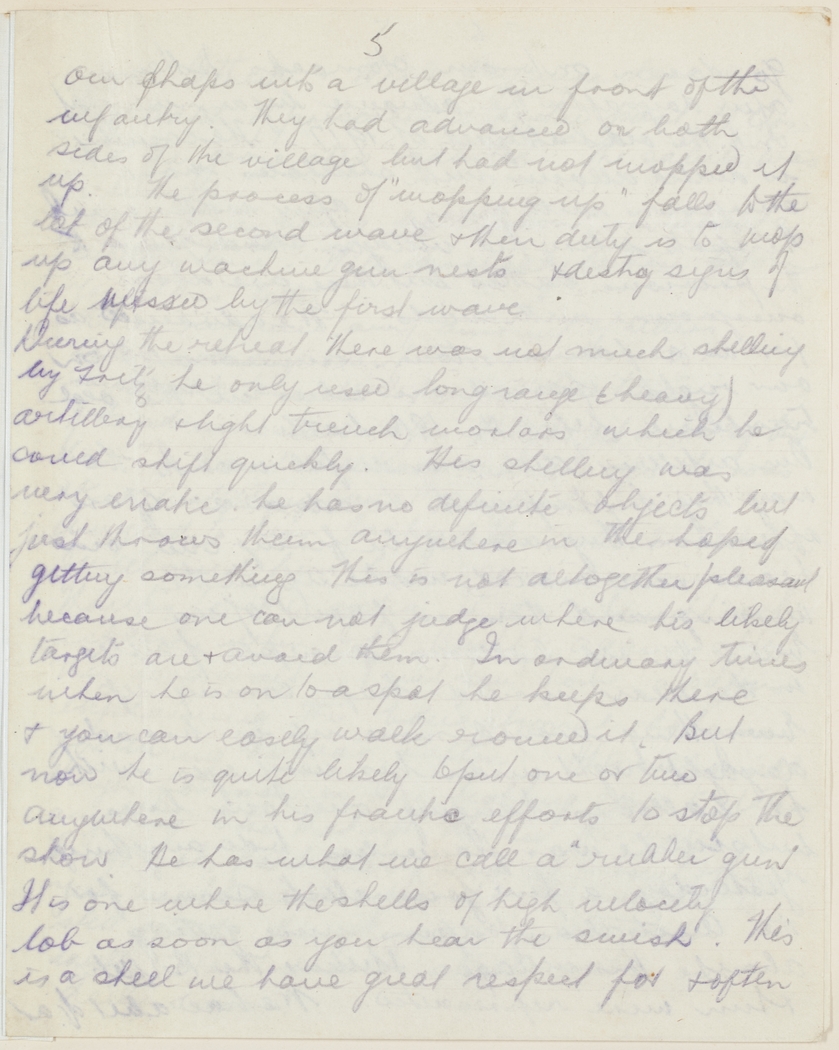 5
our chaps into a village in front of the
infantry. They had advanced on both
sides of the village but had not mopped it
up. The process of "mopping up" falls to the
lot of the second wave & their duty is to mop
up any machine gun nests & destroy signs of
life missed by the first wave.
During the retreat there was not much shelling
by Fritz he only used long range (heavy)
artillery & light trench mortars which he
could shift quickly. His shelling was
very erratic. he has no definite objects but
just throws them anywhere in the hope of
getting something This is not altogether pleasant
because one can not judge where his likely
targets are & avoid them. In ordinary times
when he is on to a spot he keeps there
& you can easily walk round it. But
now he is quite likely to put one or two
anywhere in his frantic efforts to stop the
show He has what we call a "rubber gun"
It is one where the shells of high velocity
lob as soon as you hear the swish. This
is a shell we have great respect for & often